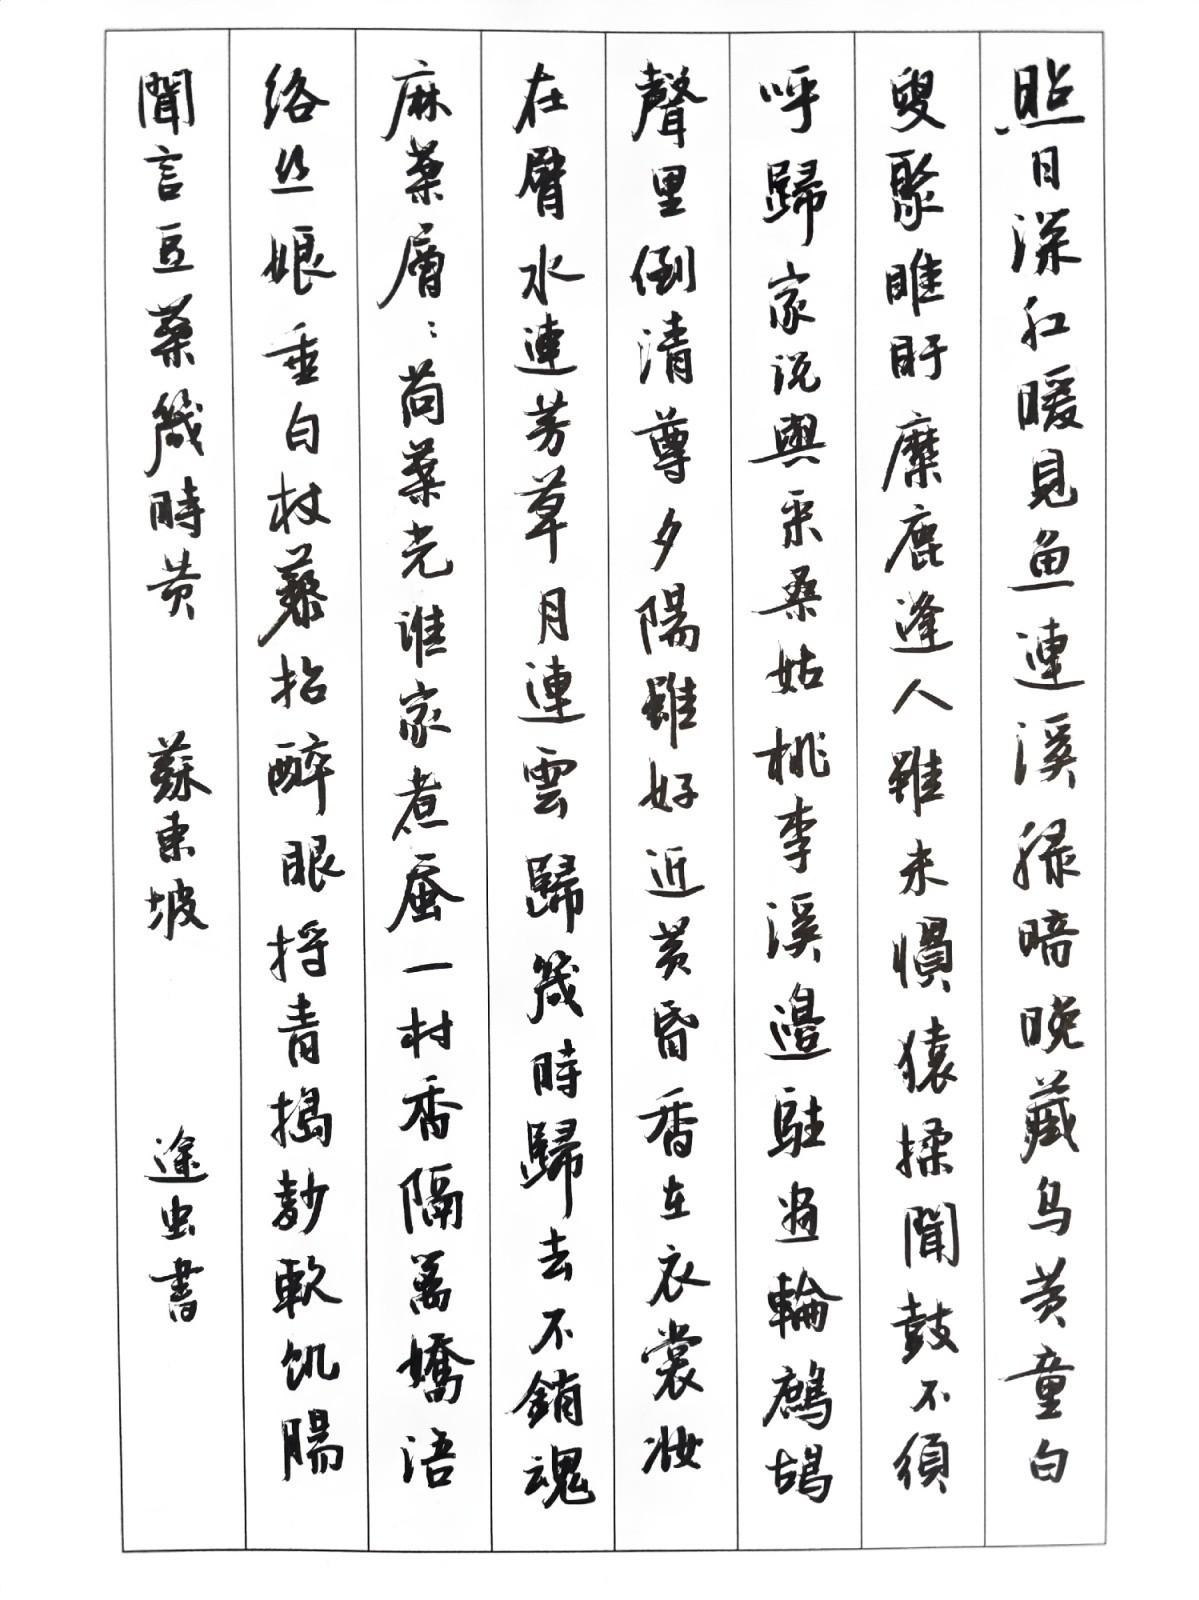 照日深红暖見鱼連溪緑暗晚藏乌黄童白
叟聚睢盱麋鹿逢人雖未慣猿猱聞鼓不須
呼歸家说與采桑姑桃李溪邊駐畫輪鹧鸪
聲里倒清尊夕陽雖好近黄昏香在衣裳妝
在臂水連芳草月連雲歸幾時歸去不銷魂
麻葉層:苘葉光谁家煮蚕一村香隔篱嬌语
络丝娘垂白杖藜抬醉眼捋青搗麨軟饥腸
聞言豆葉幾時黄 蘇東坡 途虫書